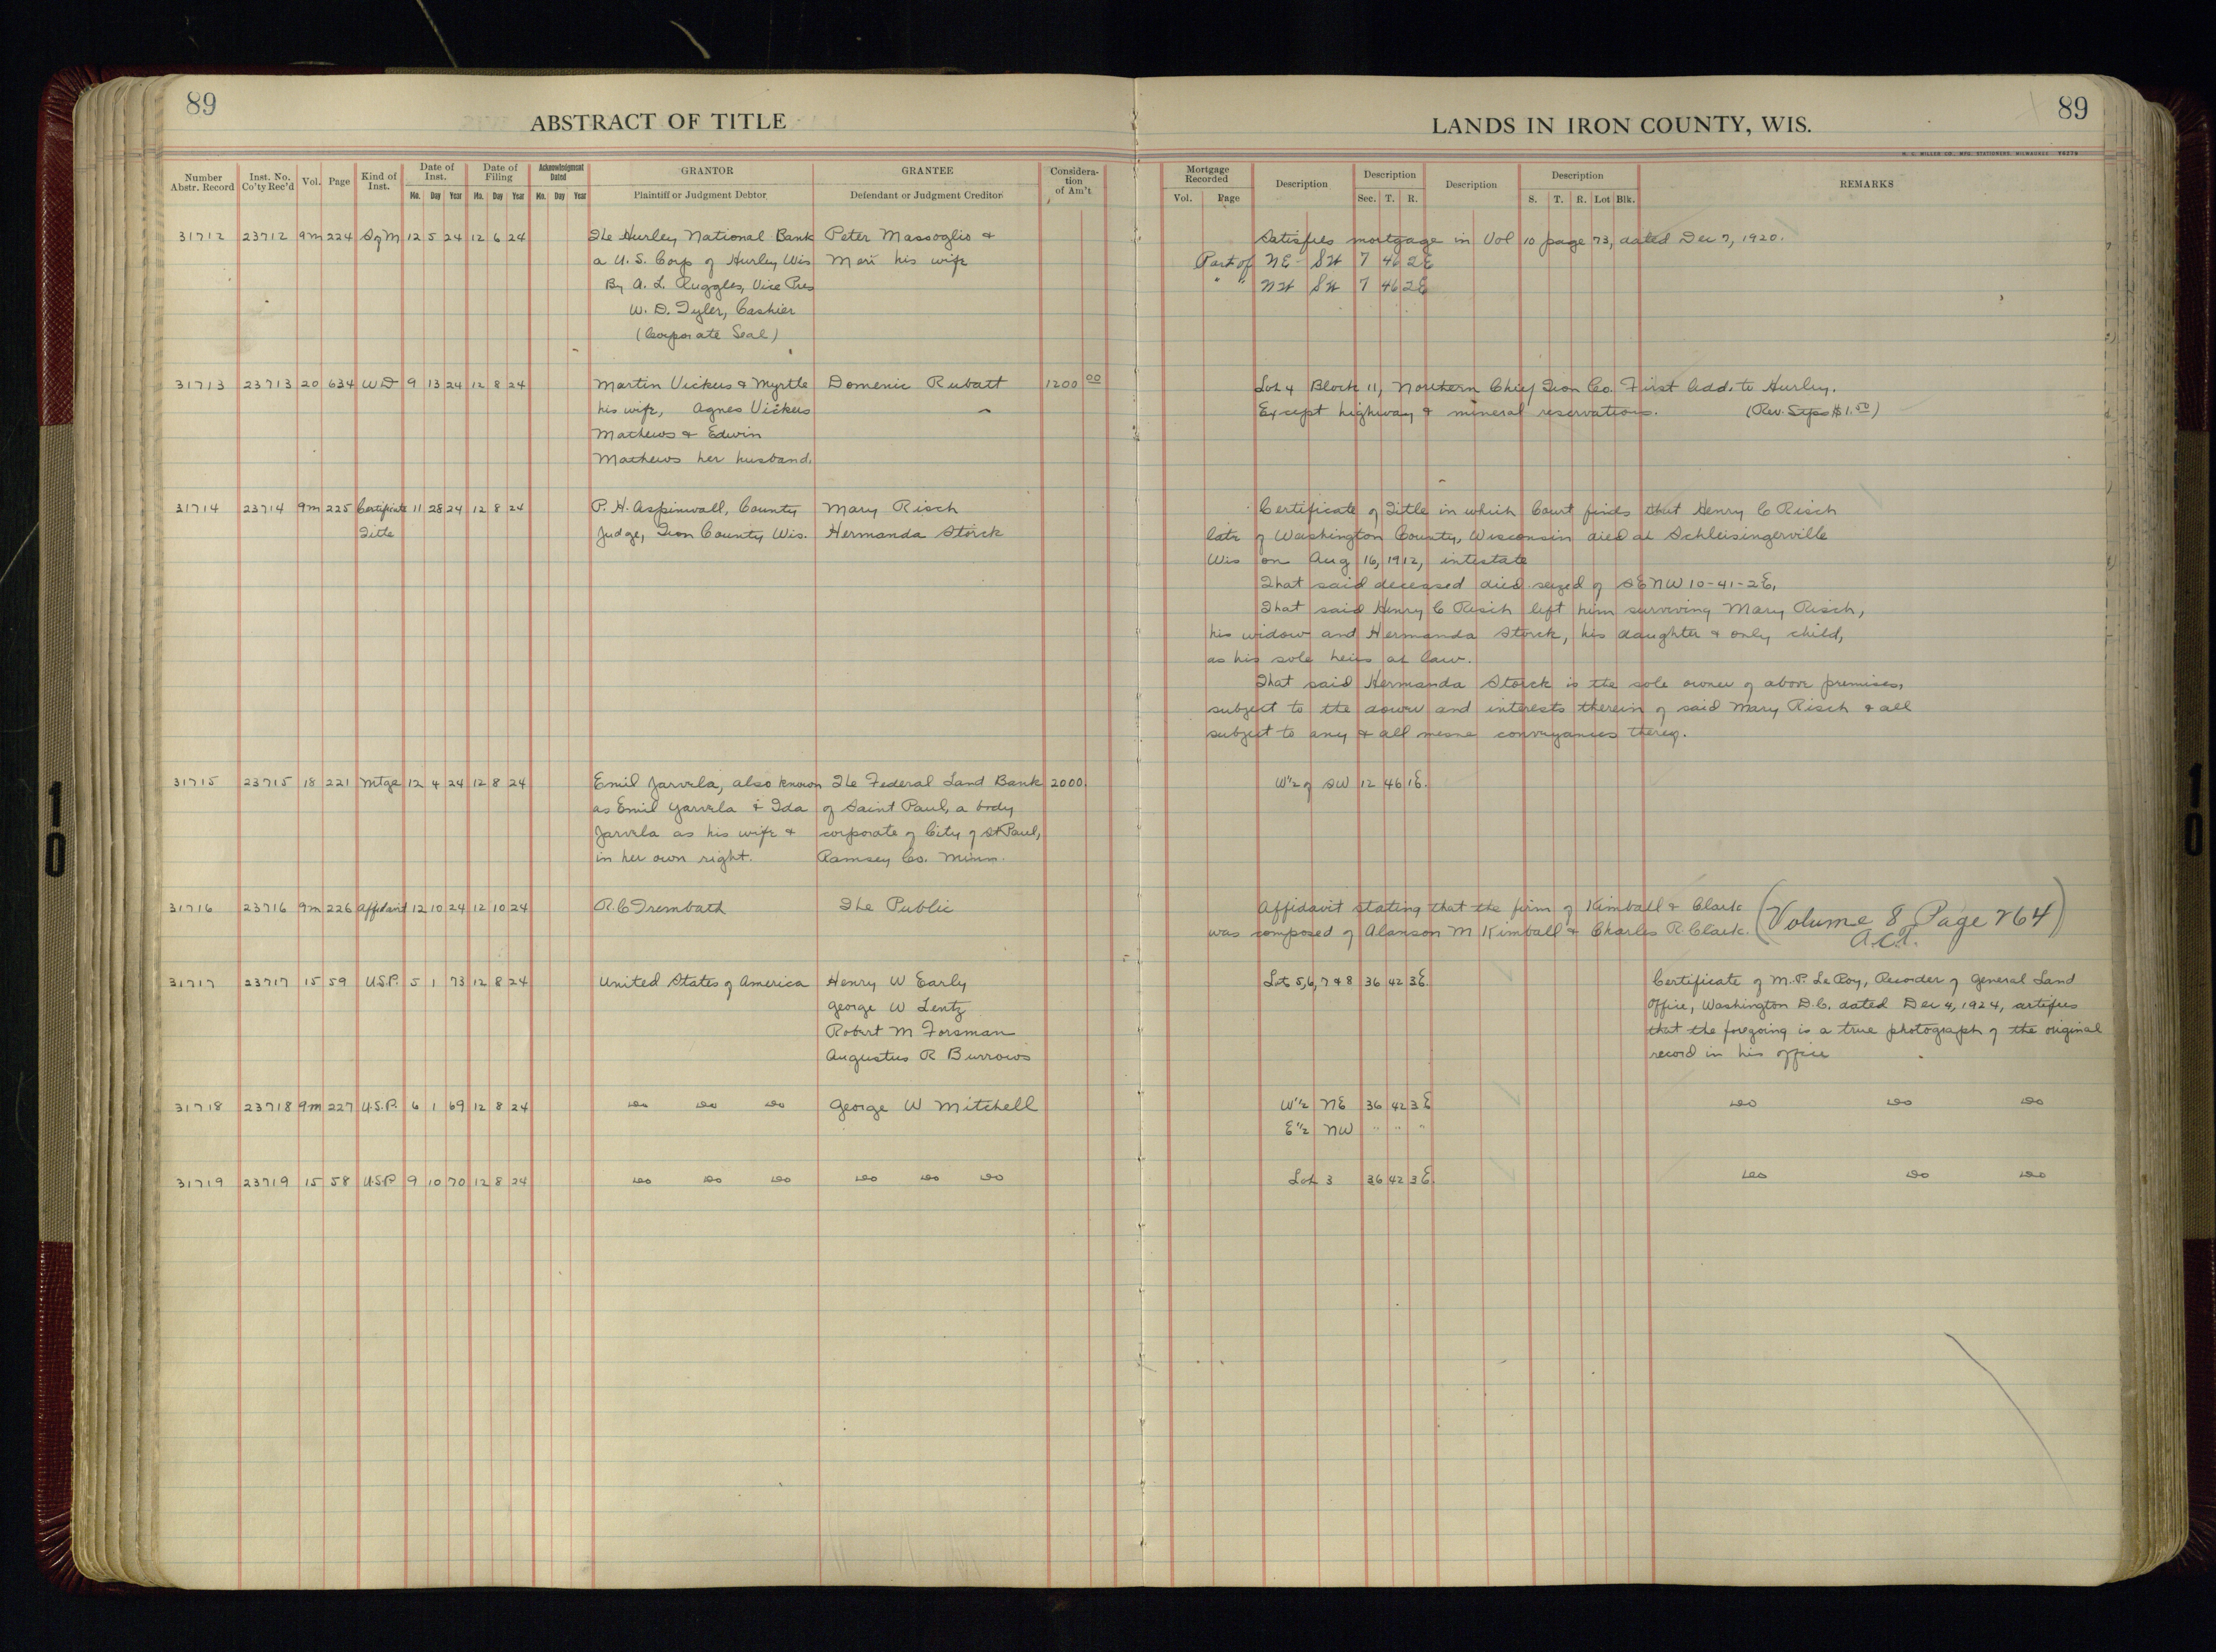 89
ABSTRACT OF TITLE
LANDS IN IRON COUNTY, WIS.
89
H. C. MILLER CO., MFG. STATIONERS, MILWAUKEE
Number Abstr. Record | Inst. No. Co'ty Rec'd | Vol. | Page | Kind of Inst. | Date of Inst. Mo. Day Year | Date of Filing Mo. Day Year | Acknowledgment Dated Mo. Day Year | GRANTOR Plaintiff or Judgment Debtor | GRANTEE Defendant or Judgment Creditor | Considera- tion of Am't | Mortgage Recorded Vol. Page | Description | Description Sec. T. R. | Description | Description S. T. R. Lot Blk. | REMARKS
31712 23712 9m 224 S of M 12 5 24 12 6 24 The Hurley National Bank Peter Massoglio & Satisfies mortgage in Vol 10 page 73, dated Dec 7, 1920.
a U.S. Corp of Hurley Wis Meri his wife Part of NE SW 7 46 2E
By A. L. Ruggles, Vice Pres " " NW SW 7 46 2E
W. D. Tyler, Cashier
(Corporate Seal)
31713 23713 20 634 WD 9 13 24 12 8 24 Martin Vickers & Myrtle Domenic Rubatt 1200 00 Lot 4 Block 11, Northern Chief Iron Co. First Add. to Hurley.
his wife, Agnes Vickers Except highway & mineral reservations. (Rev. Stps $1.50)
Mathews & Edwin
Mathews her husband.
31714 23714 9m 225 Certificate 11 28 24 12 8 24 P. H. Aspinwall, County Mary Risch Certificate of Title in which Court finds that Henry C Risch
Title Judge, Iron County Wis. Hermanda Storck late of Washington County, Wisconsin died at Schleisingerville
Wis on Aug 16, 1912, intestate
That said deceased died seized of SE NW 10-41-2E,
That said Henry C Risch left him surviving Mary Risch,
his widow and Hermanda Storck, his daughter & only child,
as his sole heirs at law.
That said Hermanda Storck is the sole owner of above premises,
subject to the dower and interests therein of said Mary Risch & all
subject to any & all mesne conveyances thereof.
31715 23715 18 221 Mtge 12 4 24 12 8 24 Emil Jarvela, also known The Federal Land Bank 2000. W½ of SW 12 46 1E.
as Emil Yarvela & Ida of Saint Paul, a body
Jarvela as his wife & corporate of City of St Paul,
in her own right. Ramsey Co. Minn.
31716 23716 9m 226 Affidavit 12 10 24 12 10 24 R. C Trembath The Public Affidavit stating that the firm of Kimball & Clark (Volume 8 Page 264)
was composed of Alanson M Kimball & Charles R. Clark. A.C.T.
31717 23717 15 59 U.S.P. 5 1 73 12 8 24 United States of America Henry W Early Lots 5,6,7 & 8 36 42 3E. Certificate of M. P. LeRoy, Recorder of General Land
George W Lentz Office, Washington D.C. dated Dec 4, 1924, certifies
Robert M Forsman that the foregoing is a true photograph of the original
Augustus R Burrows record in his office
31718 23718 9m 227 U.S.P. 6 1 69 12 8 24 do do do George W Mitchell W½ NE 36 42 3E do do do
E½ NW " " "
31719 23719 15 58 U.S.P 9 10 70 12 8 24 do do do do do do Lot 3 36 42 3E. do do do
10
10